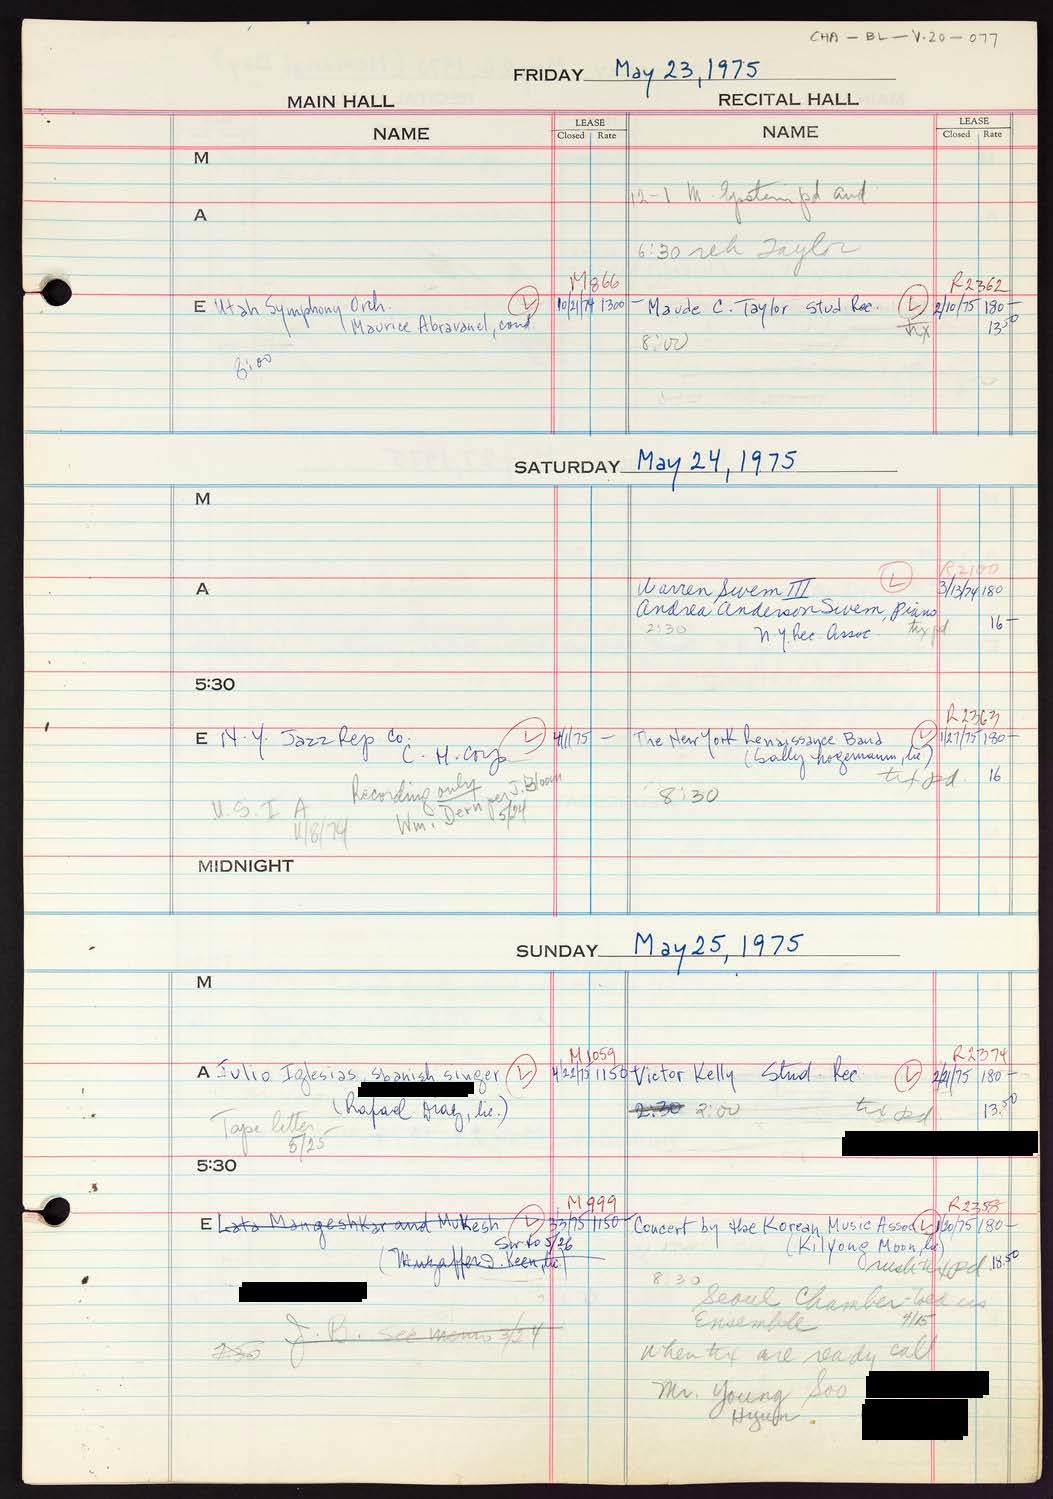 CHA - BL - V.20 - 077
FRIDAY May 23, 1975
MAIN HALL
RECITAL HALL
NAME
LEASE
Closed Rate
NAME
LEASE
Closed Rate
M
12-1 M. Epstein pd and
A
6:30 reh Taylor
M866
R2362
E Utah Symphony Orch. L 10/21/74 1300 -
Maurice Abravanel, cond.
8:00
Maude C. Taylor Stud. Rec. L 2/10/75 180 -
tix 13.50
8:00
SATURDAY May 24, 1975
M
R2100
A
Warren Swem III L 3/13/74 180
Andrea Anderson Swem, piano
2:30 N.Y. Rec. Assoc. tix pd 16 -
5:30
R2363
E N.Y. Jazz Rep Co. L 4/1/75 -
C. H. Corp
Recording only
Wm. Dern per J. Bloom
5/24
U.S.I A
11/8/74
The New York Renaissance Band L 1/27/75 180 -
(Sally Logemann, lic)
tix pd. 16
8:30
MIDNIGHT
SUNDAY May 25, 1975
M
M1059
R2374
A Julio Iglesias, spanish singer L 4/22/75 1150
(Rafael Diaz, lic.)
Tape letter
5/25
Victor Kelly Stud. Rec L 2/21/75 180 -
2:30 2:00 tix pd. 13.50
5:30
M999
R2358
E Lata Mangeshkar and Mukesh L 3/3/75 1150 -
Sw to 5/26
Keen, lic.)
J.B. see memo 3/24
7:30
Concert by the Korean Music Assoc L 1/20/75 180 -
(Kilyong Moon, lic)
rush tix pd. 18.50
8:30
Seoul Chamber
Ensemble 4/15
when tix are ready call
Mr. Young Soo
Hyun